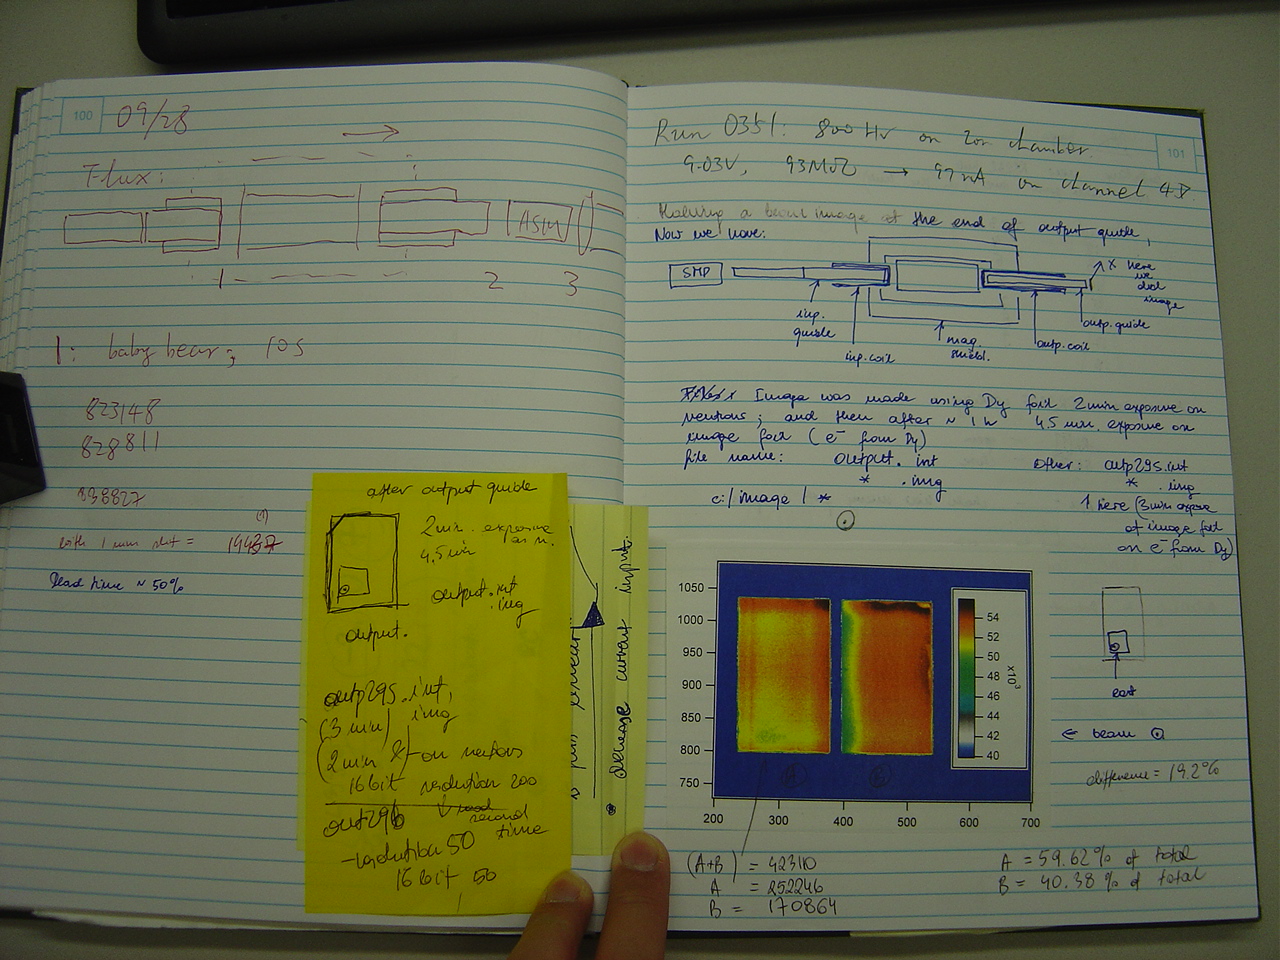 100
09/28
Flux:
ASM
1
2
3
1: baby bear, 10s
823148
828811
838827
(1)
with 1 mm slit = 19437
Dead time ~ 50%
after output guide
2 min. exposure on n.
4,5 min
output.int
.img
output.
outp295.int,
(3 min) img
(2 min) on neutrons
16 bit resolution 200
out296 second time
- resolution 50
16 bit 50
decrease current input.
101
Run 0351: 800 HV on ion chamber.
9.03V, 93MΩ → 97nA on channel 4
Making a beam image at the end of output guide,
Now we have:
SMP
x here we did image
inp. guide
inp. coil
mag. shield.
outp. coil
outp. guide
Image was made using Dy foil 2min exposure on
neutrons; and then after ~ 1h 4.5 min. exposure on
image foil (e⁻ from Dy)
file name: output.int
* .img
other: outp295.int
* .img
c:/image/*
↑ here (3min expose
of image foil
on e⁻ from Dy)
1050
1000
950
900
850
800
750
200
300
400
500
600
700
54
52
50
48
46
44
42
40
x10³
A
B
east
← beam
difference = 19.2%
(A+B) = 423110
A = 252246
B = 170864
A = 59.62% of total
B = 40.38% of total